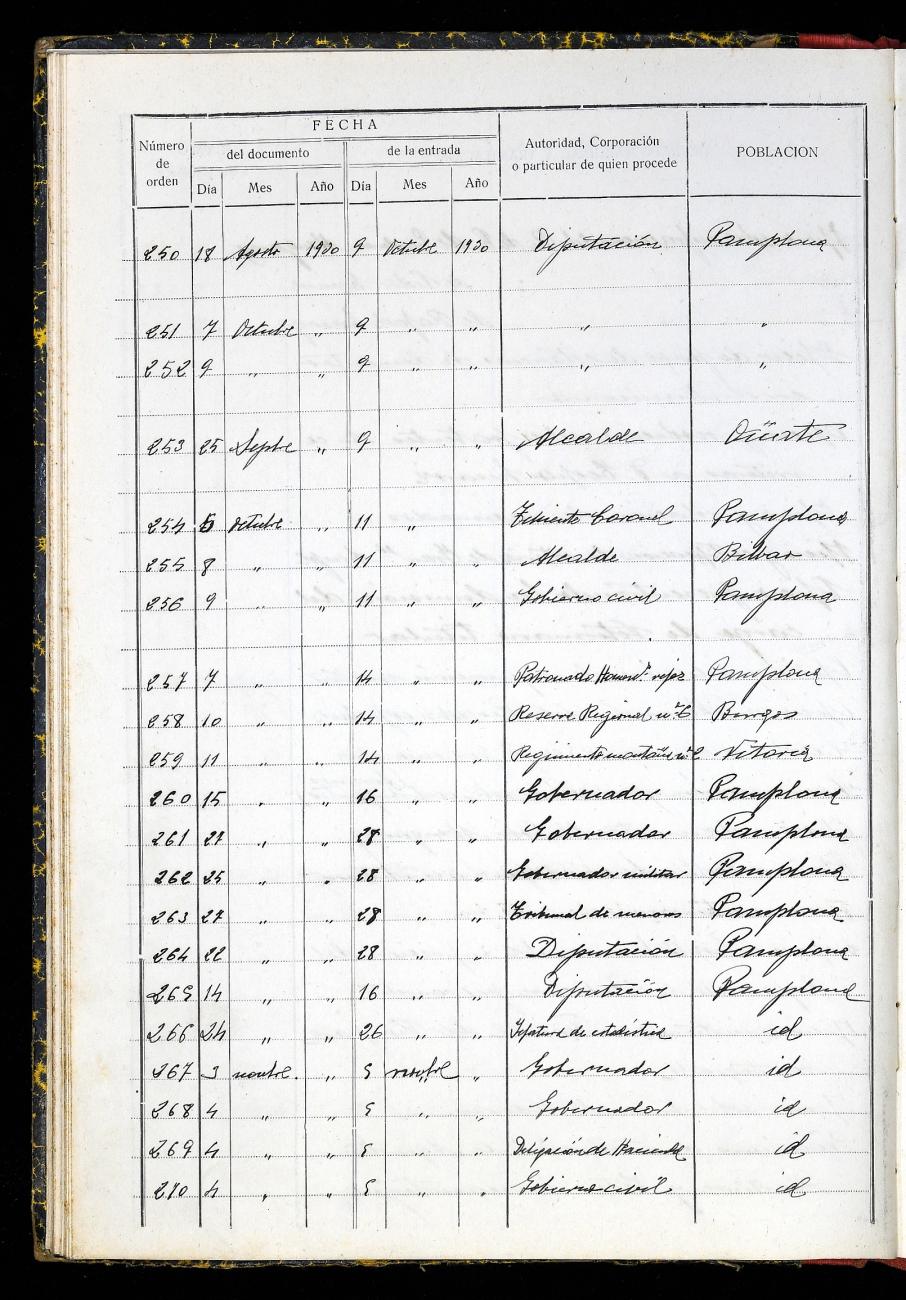 FECHA
Número de orden | del documento | de la entrada | Autoridad, Corporación o particular de quien procede | POBLACION
Día | Mes | Año | Día | Mes | Año
250 18 Agosto 1930 9 Octubre 1930 Diputación Pamplona
251 7 Octubre „ 9 „ „ „ „
252 9 „ „ 9 „ „ „ „
253 25 Septbe „ 9 „ „ Alcalde
254 5 octubre „ 11 „ Teniente Coronel Pamplona
255 8 „ „ 11 „ „ Alcalde
256 9 „ „ 11 „ „ Gobierno civil Pamplona
257 7 „ „ 14 „ „ Patronado Pamplona
258 10 „ „ 14 „ „ Reserve Regional nº 6 Burgos
259 11 „ „ 14 „ „ Regimiento montaña nº 2 Vitoria
260 15 „ „ 16 „ „ Gobernador Pamplona
261 27 „ „ 28 „ „ Gobernador Pamplona
262 25 „ „ 28 „ „ Gobernador militar Pamplona
263 27 „ „ 28 „ „ Tribunal de menores Pamplona
264 22 „ „ 28 „ „ Diputación Pamplona
265 14 „ „ 16 „ „ Diputación Pamplona
266 24 „ „ 26 „ „ de estadistica id
267 3 novbre. „ 5 novbre „ Gobernador id
268 4 „ „ 5 „ „ Gobernador id
269 4 „ „ 5 „ „ Delegación de Hacienda id
270 4 „ „ 5 „ „ Gobierno civil id